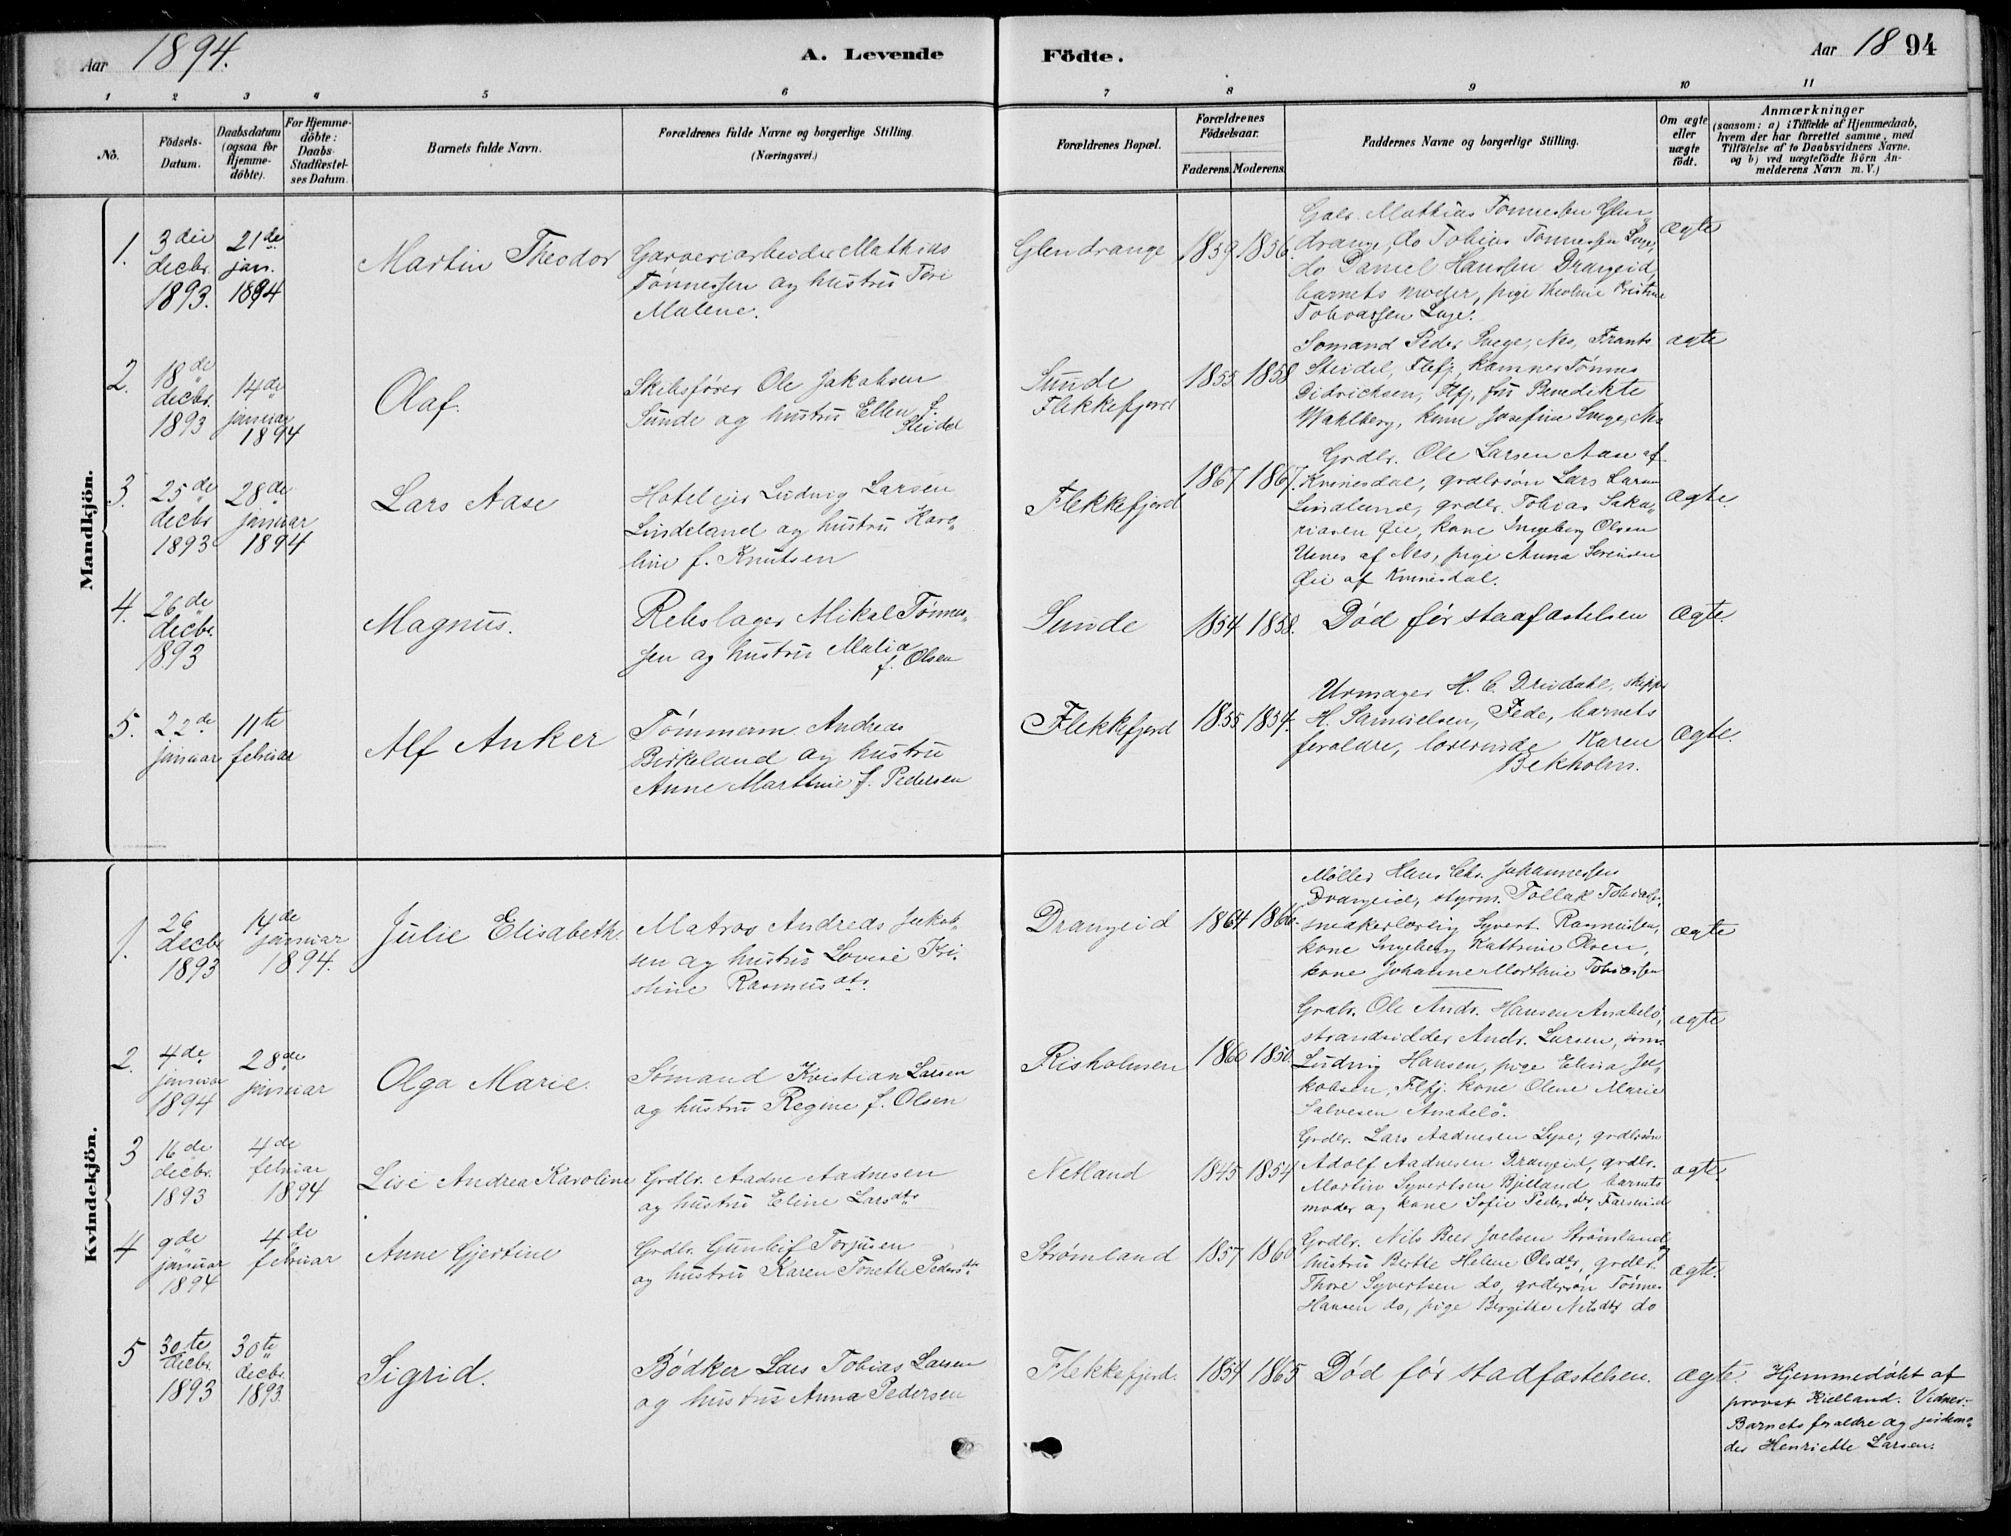 Aar 1894.
A. Levende
Födte.
Aar 18 94
1 2 3 4 5 6 7 8 9 10 11
No.
Födsels-Datum.
Daabsdatum (ogsaa for Hjemme-döbte).
For Hjemme-döbte: Daabs-Stadfæstel-ses Datum.
Barnets fulde Navn.
Forældrenes fulde Navne og borgerlige Stilling. (Næringsvei.)
Forældrenes Bopæl.
Forældrenes Födselsaar.
Faderens. Moderens.
Faddernes Navne og borgerlige Stilling.
Om ægte eller uægte födt.
Anmærkninger
(saasom: a) i Tilfælde af Hjemmedaab,
hvem der har forrettet samme, med
Tilföielse af to Daabsvidners Navne.
og b) ved uægtefödte Börn An-
melderens Navn m. V.)
Mandkjön.
1. 3die decbr. 1893. 21de jan. 1894
Martin Theodor
Garveriarbeider Mathias
Tønnessen og hustru Tori
Malene.
Glendrange 1859 1856.
Gdbr. Mathias Tønnessen Glen
drange, do Tobias Tønnessen
do Daniel Hanssen Drangeid,
barnets moder, pige Kristine
ægte
2. 18de decbr. 1893 14de januar 1894
Olaf.
Skibsfører Ole Jakobsen
Sunde og hustru Ellen f.
Steidel
Sunde
Flekkefjord
1855 1858
Sømand Peder Svege, Nes, Frants
Steidel, Flefj, Tønnes
Didrichsen, Flfj, fru Benedikte
Wahlberg, Josefine Svege, Nes
ægte
3. 25de decbr 1893 28de januar 1894
Lars Aase
Hotelejer Ludvig Larsen
Lindeland og hustru Karo-
line f. Knutsen
Flekkefjord
1867 1867.
Grdbr. Ole Larsen Aase af
Kvinesdal, grdbrsøn Lars Larsen
Lindland, grdbr. Tobias Saka-
riasen Øie, kone Ingeborg Olsen
af Nes, pige Anna Sørensen
Øie af Kvinesdal.
ægte.
4. 26de decbr. 1893
Magnus.
Rebslager Mikal Tønnes-
sen og hustru Malia
f. Olsen
Sunde 1854 1858.
Død før staafæstelsen
Ægte.
5. 22de januar 11te februar
Alf Anker
Tømmerm. Andreas
Birkeland og hustru
Anne Marthine f. Pedersen
Flekkefjord 1855 1854.
Urmager H. C. Dreidahl, skipper
H. Samuelsen, Fede, barnets
foraldre, lærerinde Karen
Bekholm.
ægte.
Kvindekjön.
1. 26 decbr 1893 14de januar 1894.
Julie Elisabeth.
Matros Andreas Jakob-
sen og hustru Lovise Kri-
stine Rasmusdtr.
Drangeid 1864 1866.
Møller Hans Chr. Johannessen
Drangeid, styrm. Tollak Tobiass.
Syvert Rasmussen,
kone Ingeborg Kattrine Olsen,
kone Johanne Marthine Tobiassen
ægte
2. 4de januar 1894 28de januar
Olga Marie.
Sømand Kristian Larsen
og hustru Regine f. Olsen
Risholmen 1860 1850.
Grdbr. Ole Andr. Hansen Anabelø,
strandsidder Andr. Larsen, søm.
Ludvig Hansen, pige Elina Ja-
kobsen, Flfj. kone Olene Marie
Salvesen Anabelø.
ægte
3 16de decbr. 1893 4de februar 1894
Lise Andrea Karoline
Grdbr. Aadne Aadnesen
og hustru Eline Larsdtr
Netland 1845 1854
Grdbr. Lars Aadnesen grdbrsøn
Adolf Aadnesen Drangeid, grdbr.
Martin Syvertsen Bjelland barnets
moder og kone Sofie Pedersdtr,
ægte.
4 9de januar 1894 4de februar
Anne Gjertine
Grdbr. Gunleif Torjusen
og hustru Karen Tonette Pedersdtr.
Strømland 1857 1860
Grdbr. Nils Beer Joelsen Strømland,
hustru Berthe Helene Olsdtr, grdbr.
Thore Syvertsen do, grdbrsøn Tønnes
Hansen do, pige Bergitte Nilsdtr do
ægte.
5 30te decbr. 1893 30te decbr. 1893.
Sigrid.
Bødker Lars Tobias Larsen
og hustru Anna Pedersen
Flekkefjord. 1854 1865
Død før stadfæstelsen.
ægte.
Hjemmedøbt af
provst Kielland. Vidner.
Barnets foraldre og jordemo-
der Henriette Larsen.